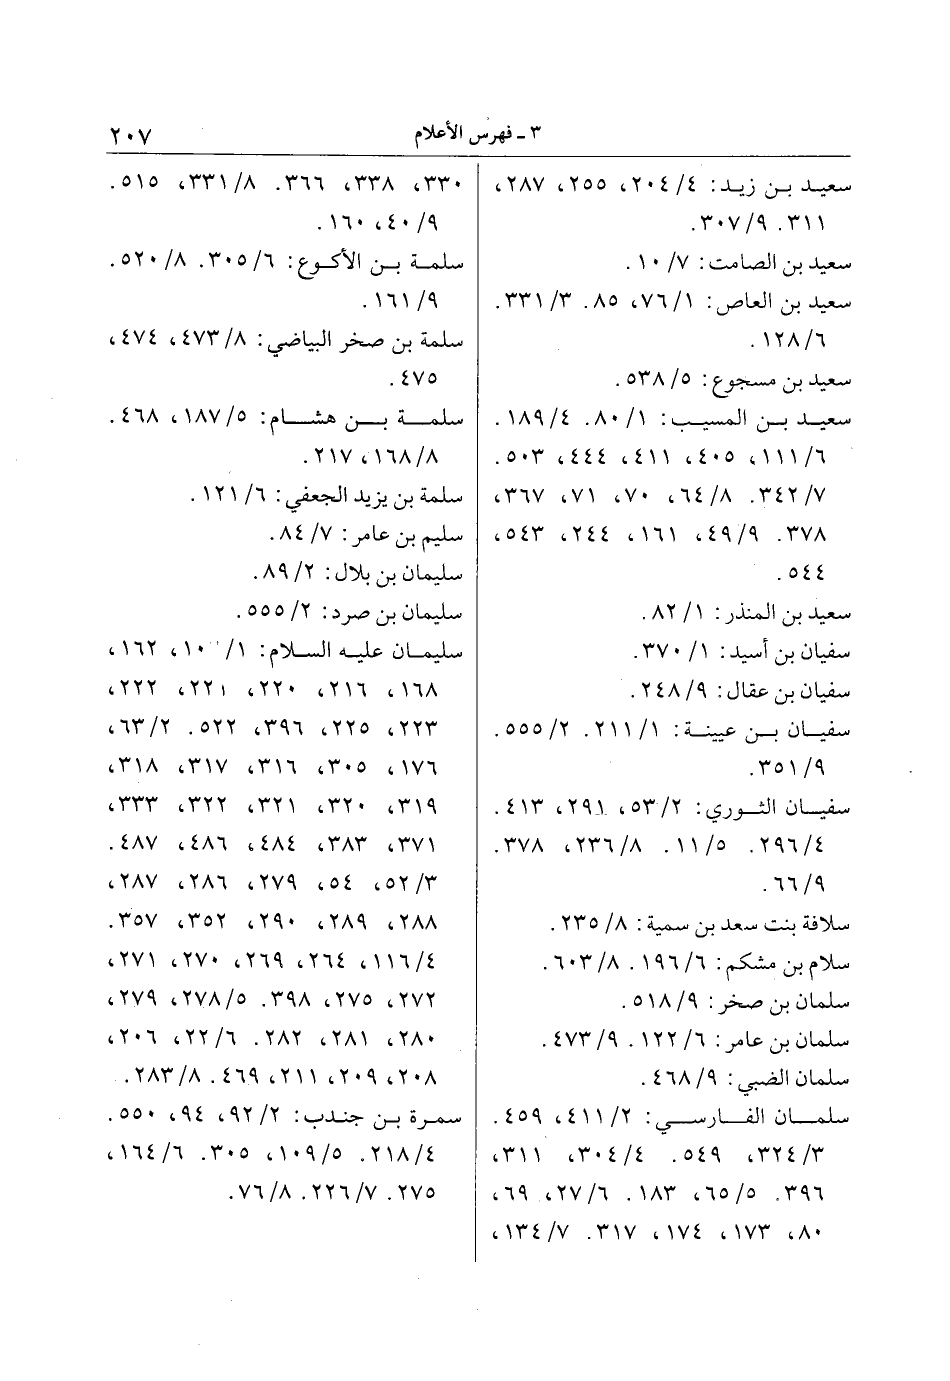 ٣ ـ فهرس الأعلام ٢٠٧
سعيد بن زيد: ٤/ ٢٠٤، ٢٥٥، ٢٨٧،
٣١١. ٩/ ٣٠٧.
سعيد بن الصامت: ٧/ ١٠.
سعيد بن العاص: ١/ ٧٦، ٨٥. ٣/ ٣٣١.
٦/ ١٢٨.
سعيد بن مسجوع: ٥/ ٥٣٨.
سعيد بن المسيب: ١/ ٨٠. ٤/ ١٨٩.
٦/ ١١١، ٤٠٥، ٤١١، ٤٤٤، ٥٠٣.
٧/ ٣٤٢. ٨/ ٦٤، ٧٠، ٧١، ٣٦٧،
٣٧٨. ٩/ ٤٩، ١٦١، ٢٤٤، ٥٤٣،
٥٤٤.
سعيد بن المنذر: ١/ ٨٢.
سفيان بن أسيد: ١/ ٣٧٠.
سفيان بن عقال: ٩/ ٢٤٨.
سفيان بن عيينة: ١/ ٢١١. ٢/ ٥٥٥.
٩/ ٣٥١.
سفيان الثوري: ٢/ ٥٣، ٢٩١، ٤١٣.
٤/ ٢٩٦. ٥/ ١١. ٨/ ٢٣٦، ٣٧٨.
٩/ ٦٦.
سلافة بنت سعد بن سمية: ٨/ ٢٣٥.
سلام بن مشكم: ٦/ ١٩٦. ٨/ ٦٠٣.
سلمان بن صخر: ٩/ ٥١٨.
سلمان بن عامر: ٦/ ١٢٢. ٩/ ٤٧٣.
سلمان الضبي: ٩/ ٤٦٨.
سلمان الفارسي: ٢/ ٤١١، ٤٥٩.
٣/ ٣٢٤، ٥٤٩. ٤/ ٣٠٤، ٣١١،
٣٩٦. ٥/ ٦٥، ١٨٣. ٦/ ٢٧، ٦٩،
٨٠، ١٧٣، ١٧٤، ٣١٧. ٧/ ١٣٤،
٣٣٠، ٣٣٨، ٣٦٦. ٨/ ٣٣١، ٥١٥.
٩/ ٤٠، ١٦٠.
سلمة بن الأكوع: ٦/ ٣٠٥. ٨/ ٥٢٠.
٩/ ١٦١.
سلمة بن صخر البياضي: ٨/ ٤٧٣، ٤٧٤،
٤٧٥.
سلمة بن هشام: ٥/ ١٨٧، ٤٦٨.
٨/ ١٦٨، ٢١٧.
سلمة بن يزيد الجعفي: ٦/ ١٢١.
سليم بن عامر: ٧/ ٨٤.
سليمان بن بلال: ٢/ ٨٩.
سليمان بن صرد: ٢/ ٥٥٥.
سليمان عليه السلام: ١/ ١٠، ١٦٢،
١٦٨، ٢١٦، ٢٢٠، ٢٢١، ٢٢٢،
٢٢٣، ٢٢٥، ٣٩٦، ٥٢٢. ٢/ ٦٣،
١٧٦، ٣٠٥، ٣١٦، ٣١٧، ٣١٨،
٣١٩، ٣٢٠، ٣٢١، ٣٢٢، ٣٣٣،
٣٧١، ٣٨٣، ٤٨٤، ٤٨٦، ٤٨٧.
٣/ ٥٢، ٥٤، ٢٧٩، ٢٨٦، ٢٨٧،
٢٨٨، ٢٨٩، ٢٩٠، ٣٥٢، ٣٥٧.
٤/ ١١٦، ٢٦٤، ٢٦٩، ٢٧٠، ٢٧١،
٢٧٢، ٢٧٥، ٣٩٨. ٥/ ٢٧٨، ٢٧٩،
٢٨٠، ٢٨١، ٢٨٢. ٦/ ٢٢، ٢٠٦،
٢٠٨، ٢٠٩، ٢١١، ٤٦٩. ٨/ ٢٨٣.
سمرة بن جندب: ٢/ ٩٢، ٩٤، ٥٥٠.
٤/ ٢١٨. ٥/ ١٠٩، ٣٠٥. ٦/ ١٦٤،
٢٧٥. ٧/ ٢٢٦. ٨/ ٧٦.